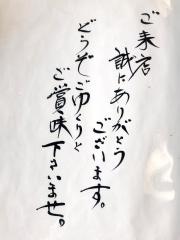 ご来店
誠にありがとう
ございます。
どうぞごゆくりと
ご賞味下さいませ。